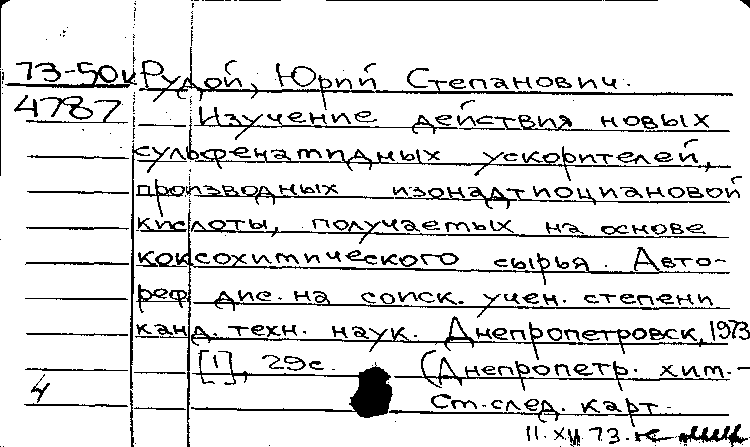 73-50к Рудой, Юрий Степанович.
4787 Изучение действия новых
сульфенамидных ускорителей,
производных изонадтиоциановой
кислоты, получаемых на основе
коксохимического сырья. Авто-
реф. дис. на соиск. учен. степени
канд. техн. наук. Днепропетровск, 1973
[1], 29с. (Днепропетр. хим.-
4 См.след. карт.
11.XII 73.